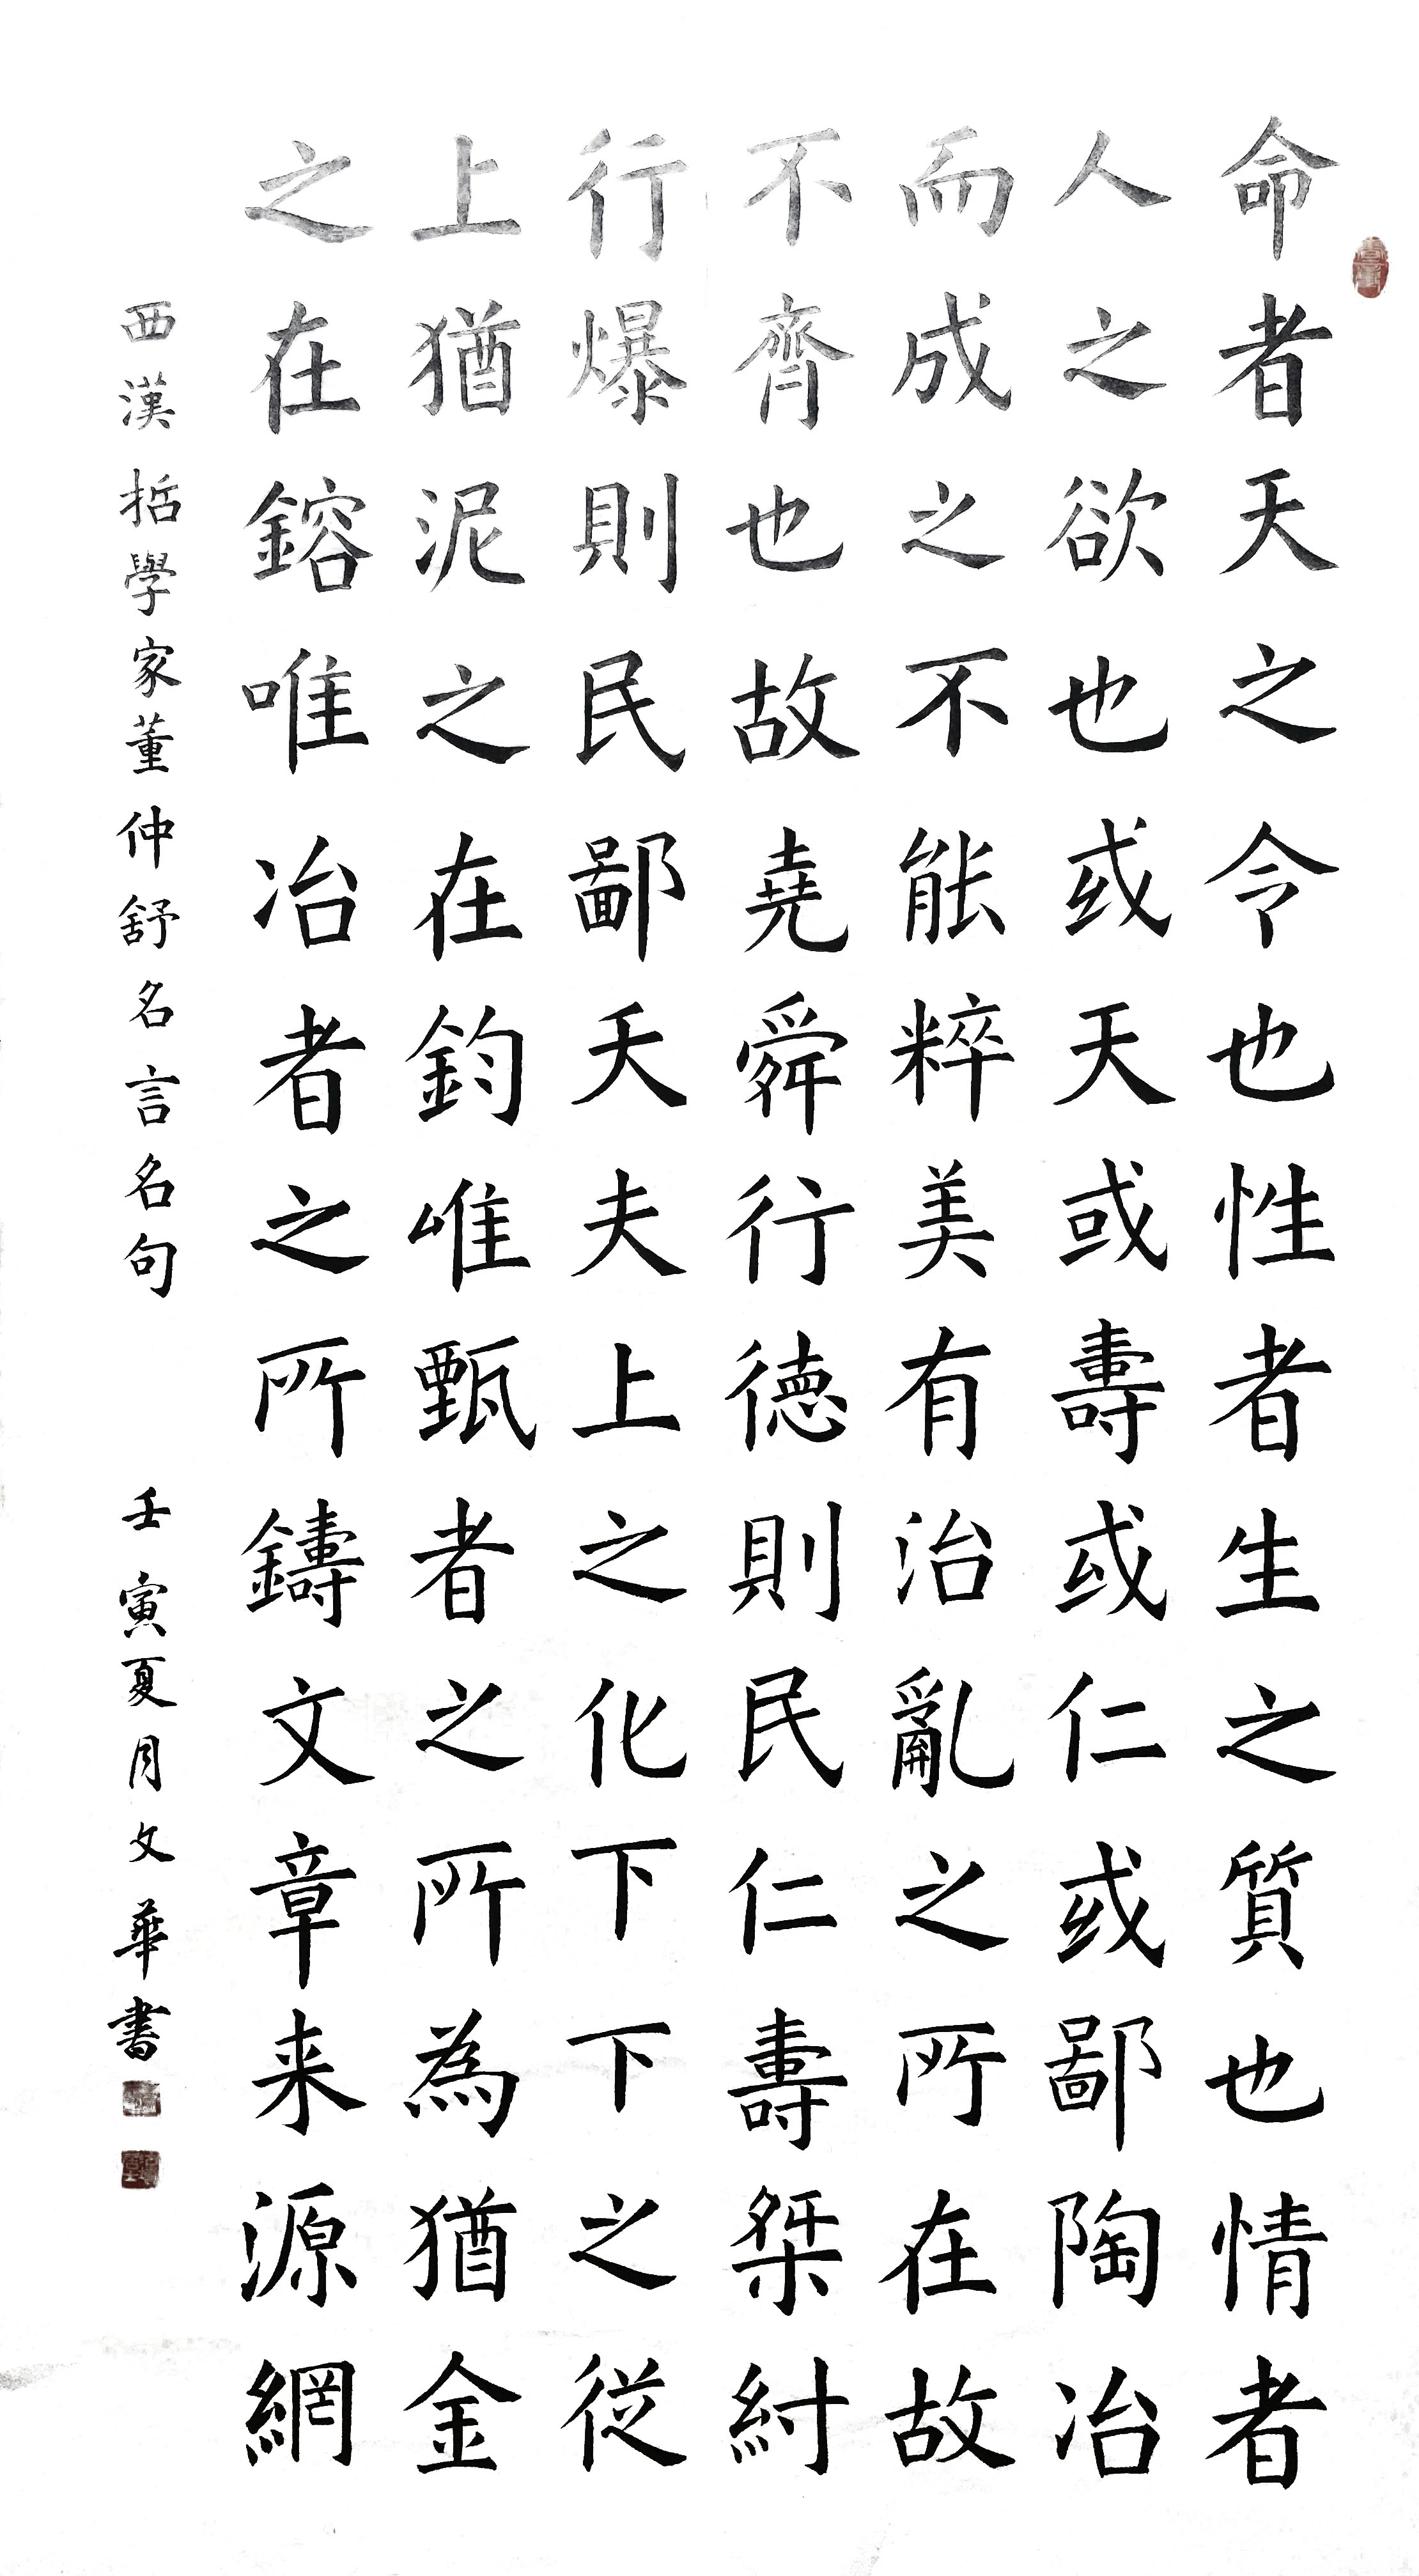 命者天之令也性者生之質也情者
人之欲也或夭或壽或仁或鄙陶冶
而成之不能粹美有治亂之所在故
不齊也故堯舜行德則民仁壽桀紂
行爆則民鄙夭夫上之化下下之從
上猶泥之在鈞唯甄者之所為猶金
之在鎔唯冶者之所鑄文章来源網
西漢哲學家董仲舒名言名句
壬寅夏月文華書